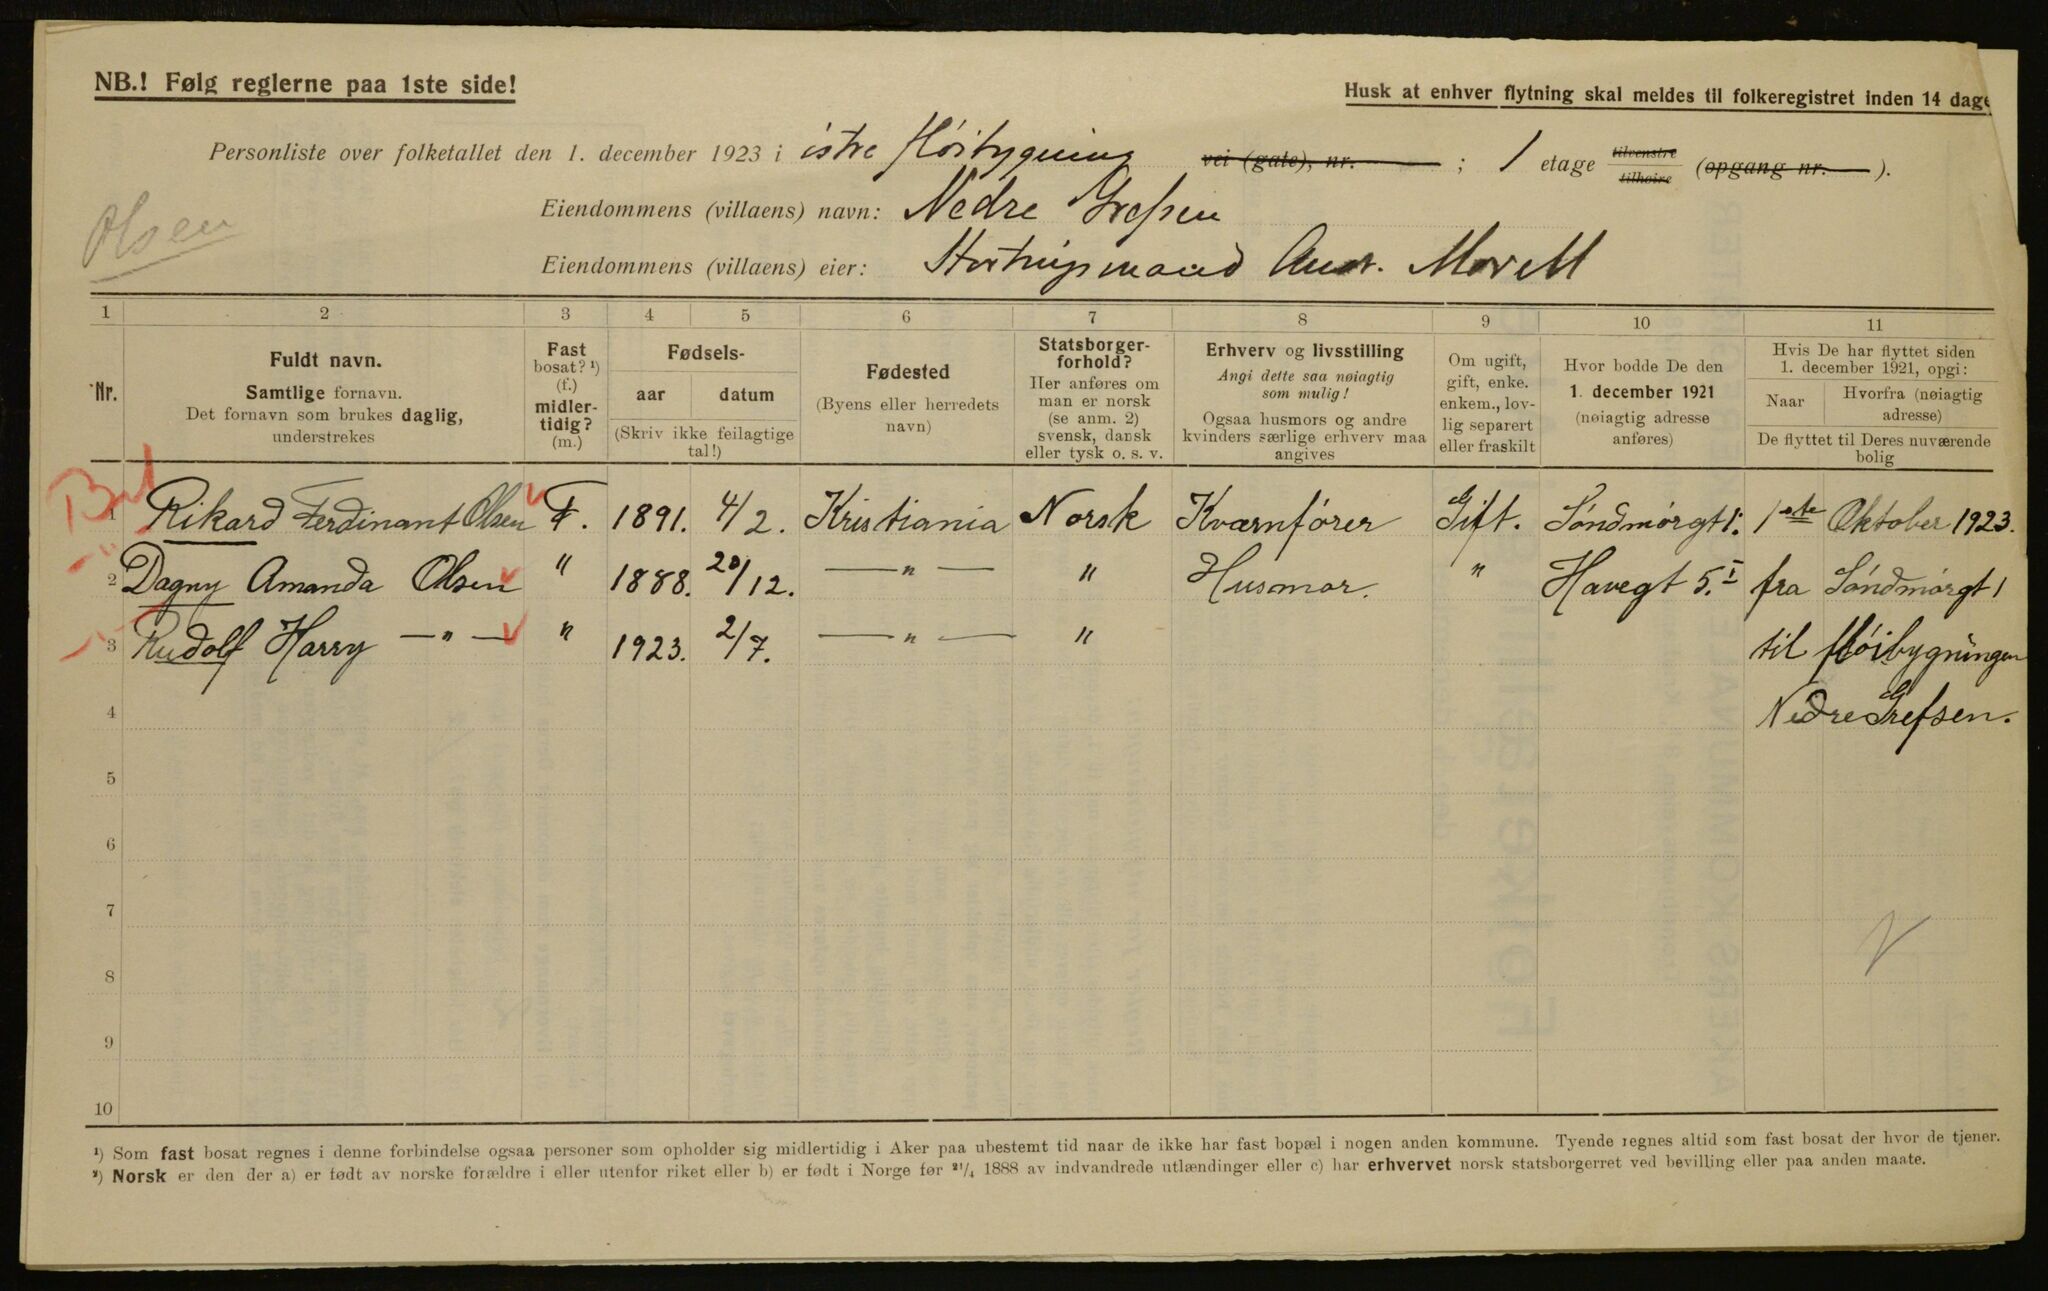 NB.! Følg reglerne paa 1ste side!
Husk at enhver flytning skal meldes til folkeregistret inden 14 dage
Personliste over folketallet den 1. december 1923 i østre Høibygning vei (gate), nr. ; 1 etage tilvenstre tilhøire (opgang nr. ).
Olsen
Eiendommens (villaens) navn: Nedre Grefsen
Eiendommens (villaens) eier: Stortingsmand And. Morell
1 2 3 4 5 6 7 8 9 10 11
Nr.
Fuldt navn.
Samtlige fornavn.
Det fornavn som brukes daglig,
understrekes
Fast
bosat? ¹)
(f.)
midler-
tidig?
(m.)
Fødsels-
aar datum
(Skriv ikke feilagtige
tal!)
Fødested
(Byens eller herredets
navn)
Statsborger-
forhold?
Her anføres om
man er norsk
(se anm. 2)
svensk, dansk
eller tysk o. s. v.
Erhverv og livsstilling
Angi dette saa nøiagtig
som mulig!
Ogsaa husmors og andre
kvinders særlige erhverv maa
angives
Om ugift,
gift, enke.
enkem., lov-
lig separert
eller fraskilt
Hvor bodde De den
1. december 1921
(nøiagtig adresse
anføres)
Hvis De har flyttet siden
1. december 1921, opgi:
Naar Hvorfra (nøiagtig
adresse)
De flyttet til Deres nuværende
bolig
1 Rikard Ferdinant Olsen F. 1891. 4/2. Kristiania Norsk Kværnfører Gift. Søndmørgt 1. 1ste Oktober 1923.
2 Dagny Amanda Olsen " 1888. 20/12. — " — " Husmor. " Havegt 5. I fra Søndmørgt 1
3 Rudolf Harry — " — " 1923. 2/7. — " — " til Høibygningen
4 Nedre Grefsen.
5
6
7
8
9
10
¹) Som fast bosat regnes i denne forbindelse ogsaa personer som opholder sig midlertidig i Aker paa ubestemt tid naar de ikke har fast bopæl i nogen anden kommune. Tyende regnes altid som fast bosat der hvor de tjener.
²) Norsk er den der a) er født av norske forældre i eller utenfor riket eller b) er født i Norge før ²¹/₄ 1888 av indvandrede utlændinger eller c) har erhvervet norsk statsborgerret ved bevilling eller paa anden maate.